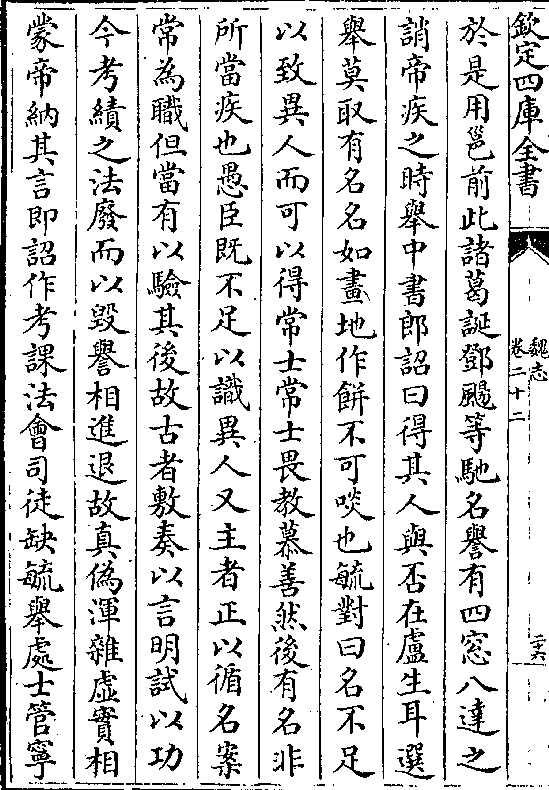 欽定四庫全書
魏志
卷二十二
二十六
於是用邕前此諸葛誕鄧颺等馳名譽有四窓八達之
誚帝疾之時舉中書郎詔曰得其人與否在盧生耳選
舉莫取有名名如畫地作餅不可啖也毓對曰名不足
以致異人而可以得常士常士畏教慕善然後有名非
所當疾也愚臣既不足以識異人又主者正以循名案
常為職但當有以驗其後故古者敷奏以言明試以功
今考績之法廢而以毀譽相進退故真偽渾雜虛實相
蒙帝納其言即詔作考課法會司徒缺毓舉處士管寧